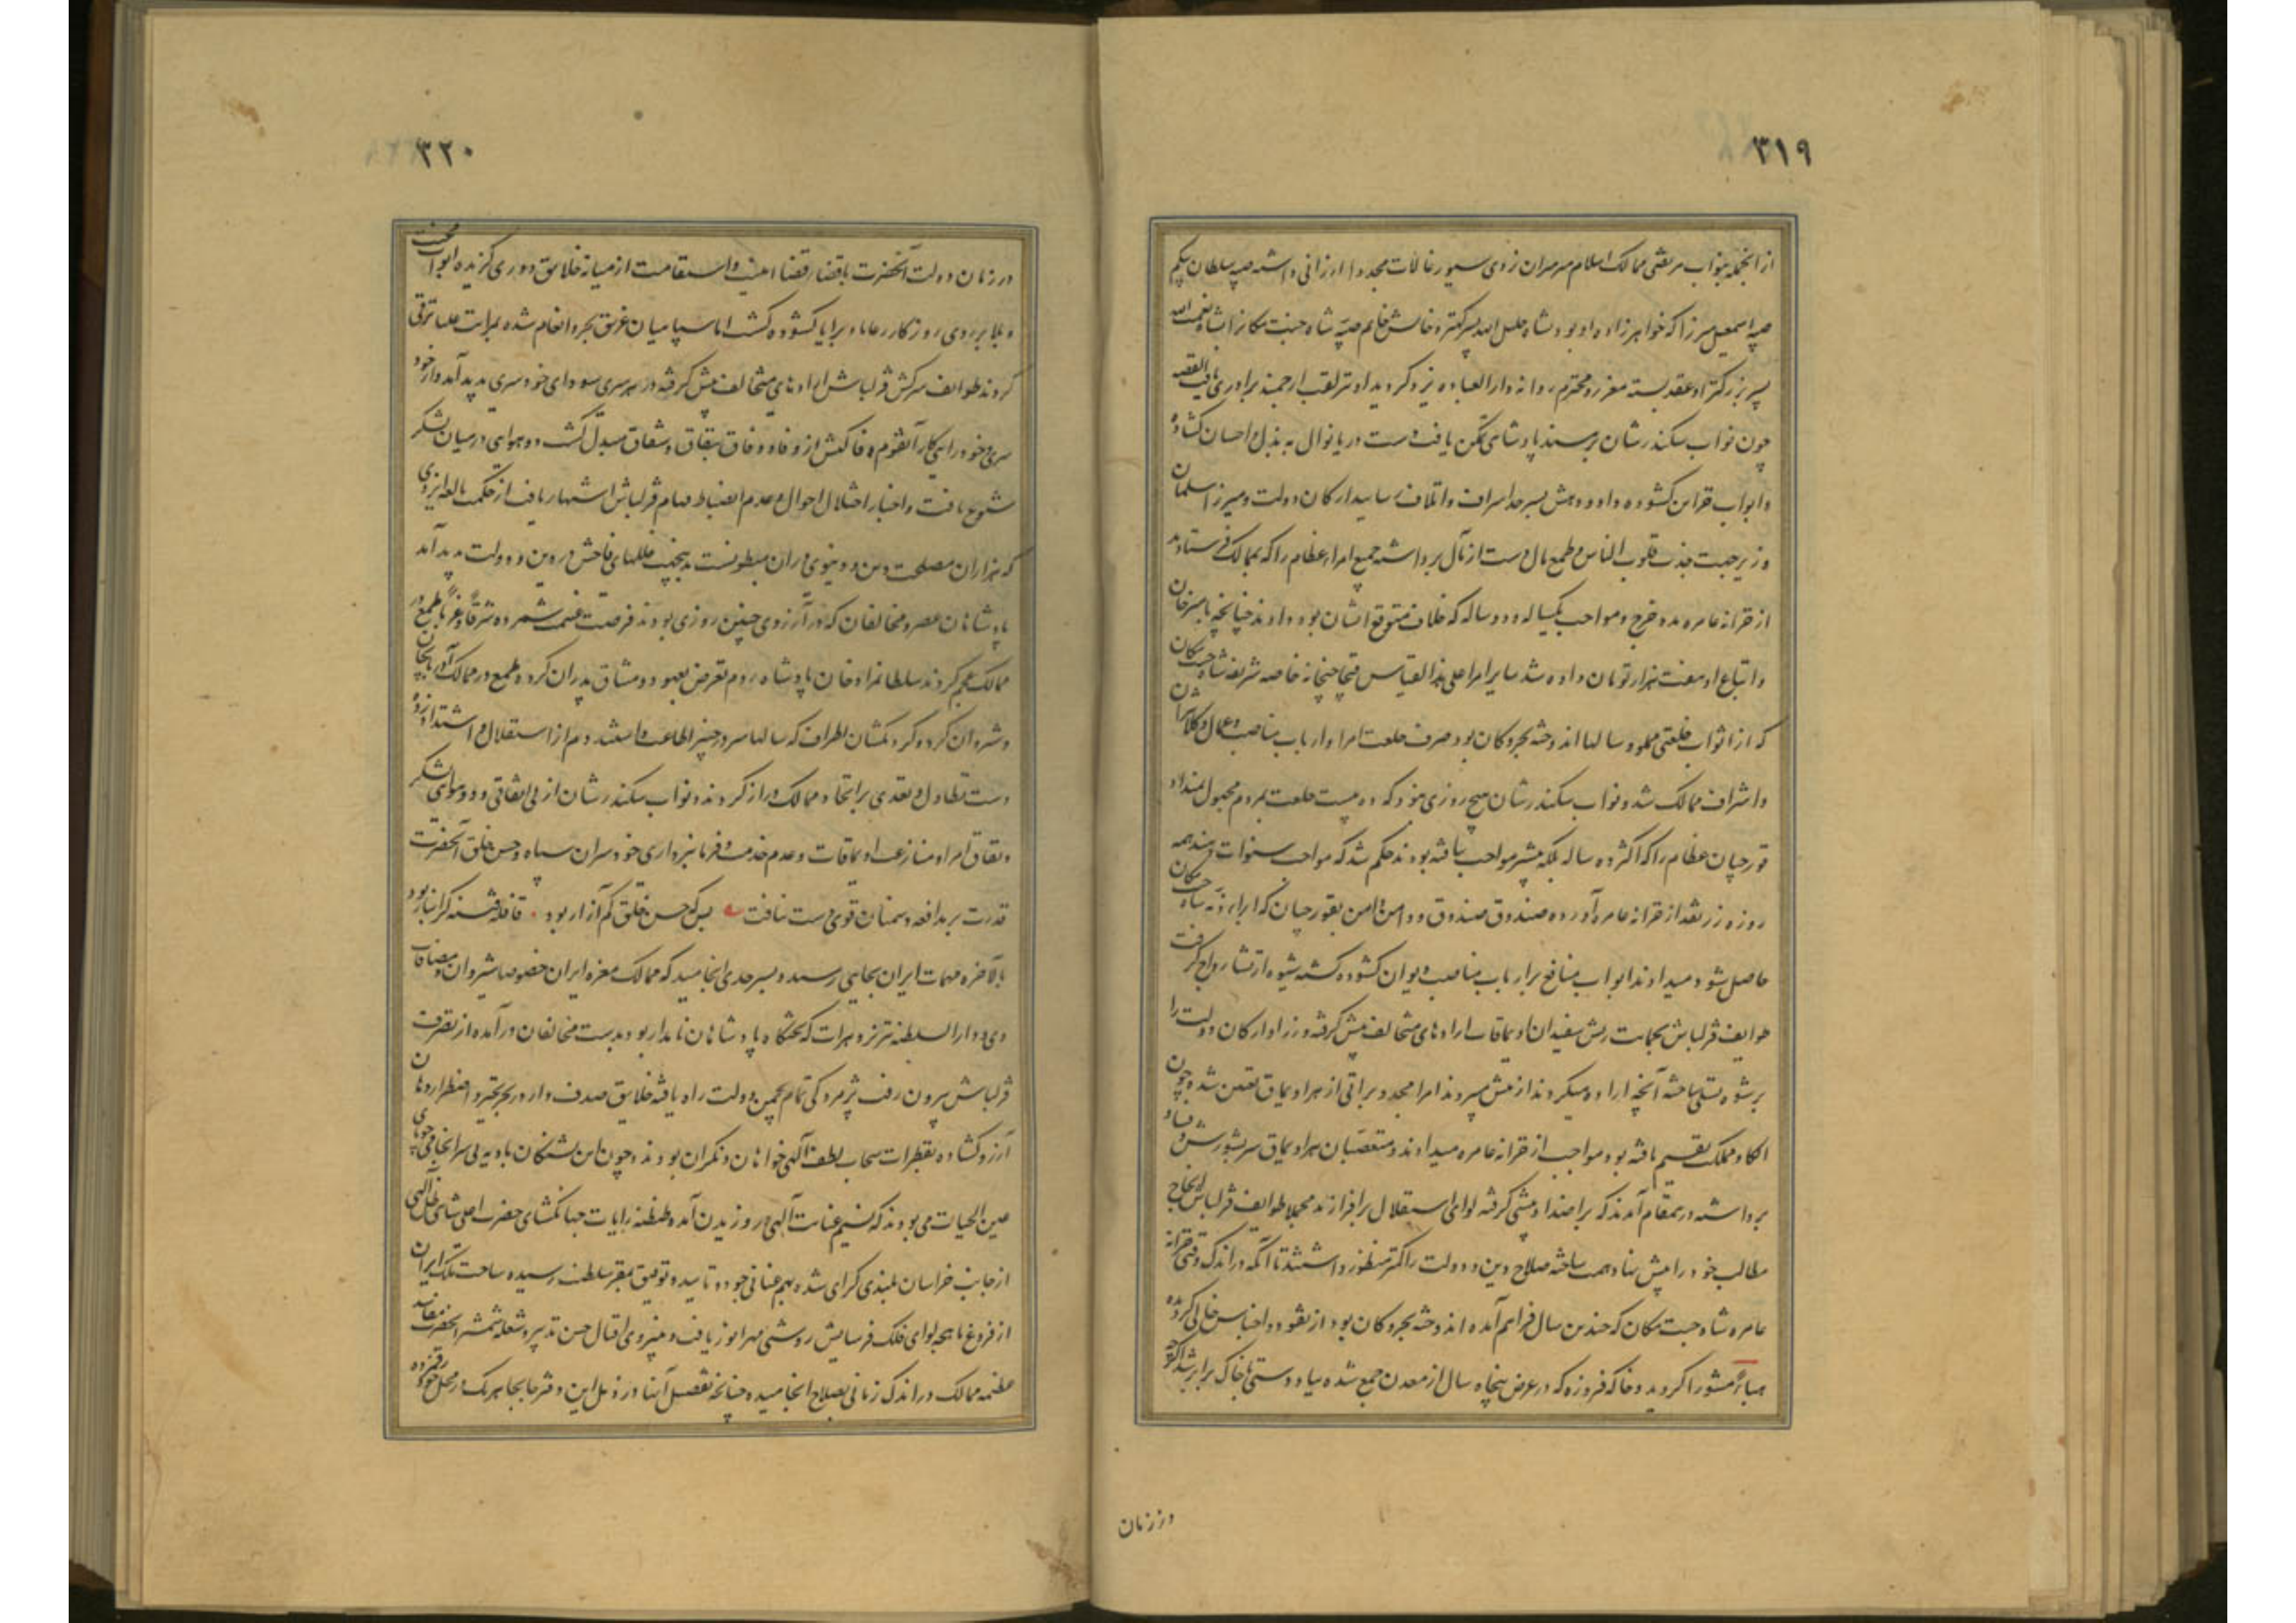 ۳۱۹
از آنجمله بنواب مرتضی ممالک اسلام میرمیران یزدی سیورغالات مجددا ارزانی داشته صبیه سلطان بیگم
صبیه اسمعیل میرزا که خواهرزاده او بود بشاه خلیل الله پسر کهتر و خانش خانم صبیه شاه جنت مکان را بشاه نعمت الله
پسر بزرگتر او عقد بسته معزز و محترم روانه دارالعباده یزد گردید و او نیز لقب ارجمند برادری یافت القصه
چون نواب سکندرشان بر مسند پادشاهی تمکن یافت دست دریا نوال به بذل و احسان گشاده
و ابواب خزاین گشوده داد و دهش بسرحد اسراف و اتلاف رسانید ارکان دولت و میرزا سلمان
وزیر جهت جذب قلوب الناس و طمع مال دست از مآل برداشته جمیع امراء عظام را که بممالک فرستادند
از خزانه عامره مدد خرج و مواجب یکساله و دو ساله که خلاف متوقع ایشان بود دادند چنانچه بامیرخان
و اتباع او هفت هزار تومان داده شد سایر امرا علی هذا القیاس قیچاچیخانه خاصه شریفه شاه جنت مکان
که از اثواب خلعتی مملو و سالها اندوخته بحر و کان بود صرف خلعت امرا و ارباب مناصب و عمال و کلانتران
و اشراف ممالک شد و نواب سکندرشان هیچ روزی نبود که ده بیست خلعت بمردم مجهول نمیداد
قورچیان عظام را که اکثر ده ساله بلکه بیشتر مواجب نیافته بودند حکم شد که مواجب سنوات بدهند همه
روزه زر نقد از خزانه عامره آورده صندوق صندوق و دامن دامن بقورچیان که ابراء ذمه شاه جنت مکان
حاصل شود میدادند ابواب منافع بر ارباب مناصب دیوان گشوده گشته شیوه ارتشا رواج گرفت
طوایف قزلباش بحمایت ریش سفیدان اویماقات اراده‌های متخالف پیش گرفته وزرا و ارکان دولت را
برشوه تسلی ساخته آنچه اراده میکردند از پیش میبردند امرا مجدد براتی از هر اویماق تعیین شده چون
الکاء و مملکت تقسیم یافته بود مواجب از خزانه عامره میدادند و متعصبان هر اویماق سر بشورش و فساد
برداشته در مقام آمدند که بر اضداد پیشی گرفته لوای استقلال برافرازند مجملا طوایف قزلباش انجاح
مطالب خود را پیش نهاد همت ساخته صلاح دین و دولت را کمتر منظور داشتند تا آنکه در اندک وقتی خزانه
عامره شاه جنت مکان که چندین سال فراهم آمده اندوخته بحر و کان بود از نقود و اجناس خالی گردیده
هباء منثورا گردید و خاکه فیروزه که در عرض پنجاه سال از معدن جمع شده بیاد دستی با خاک برابر شد اگرچه
در زمان
۳۲۰
در زمان دولت آنحضرت باقتضاء قضا امنیت و استقامت از میانه خلایق دوری گزیده ابواب محنت
و بلا بر روی روزگار رعایا و برایا گشوده گشت اما سپاهیان غریق بحر و انعام شده بمراتب علیا ترقی
کردند طوایف سرکش قزلباش اراده‌های متخالف پیش گرفته در هر سری سودای خودسری پدید آمد و از خود
سری و خودرایی کار آنقوم وفا کیش از وفاء و وفاق بنفاق و شقاق مبدل گشت دو هوایی در میان لشکر
شیوع یافت و اخبار اختلال احوال و عدم انضباط مهام قزلباش اشتهار یافت از حکمت بالغه ایزدی
که هزاران مصلحت دینی و دنیوی در آن مبطونست بدینجهت خللهای فاحش در دین و دولت پدید آمد
پادشاهان عصر و مخالفان که در آرزوی چنین روزی بودند فرصت غنیمت شمرده شرقا و غربا طمع در
ممالک عجم کردند سلطانمراد خان پادشاه روم تعرض بعهود و میثاق پدران کرده طمع در ممالک آذربایجان
و شروان کرد و گردنکشان اطراف که سالها سر در چنبر اطاعت داشتند دم از استقلال و اشتداد زده
دست تطاول و تعدی بر انحاء ممالک دراز کردند و نواب سکندرشان از بی اتفاقی و دو هوایی لشکر
و نفاق امرا و منازعت اویماقات و عدم خدمت و فرمانبرداری خودسران سپاه و حسن خلق آنحضرت
قدرت بر مدافعه دشمنان قوی دست نیافت بس که حسن خلق کم آزار بود قافله فتنه گرانبار بود
بالاخره مهمات ایران بجایی رسید و بسرحدی انجامید که ممالک معزه ایران خصوصا شیروان و مضافات
وی و دارالسلطنه تبریز و هرات که تختگاه پادشاهان نامدار بود بدست مخالفان درآمده از تصرف
قزلباش بیرون رفت پژمردگی تمام بچمن دولت راه یافته خلایق صدف وار در بحر تحیر و اضطرار دهان
آرزو گشاده بقطرات سحاب لطف الهی خواهان و نگران بودند و چون تشنگان بادیه بی سرانجامی جویای
عین الحیات می بودند که نسیم عنایت الهی در وزیدن آمد و طنطنه رایات جهانگشای حضرت اعلی شاهی ظل الهی
از جانب خراسان بلندی گرای شده بهم عنانی جود و تایید و توفیق بمقر سلطنت رسیده ساحت ملک ایران
از فروغ ماهچه لوای فلک فرسایش روشنی مهر انور یافت و بنیروی اقبال حسن تدبیر و شعله شمشیر آنحضرت مفاسد
عظیمه ممالک در اندک زمانی بصلاح انجامیده چنانچه تفصیل آنها در ذیل این دفتر جابجا هریک در محل خود رقمزده